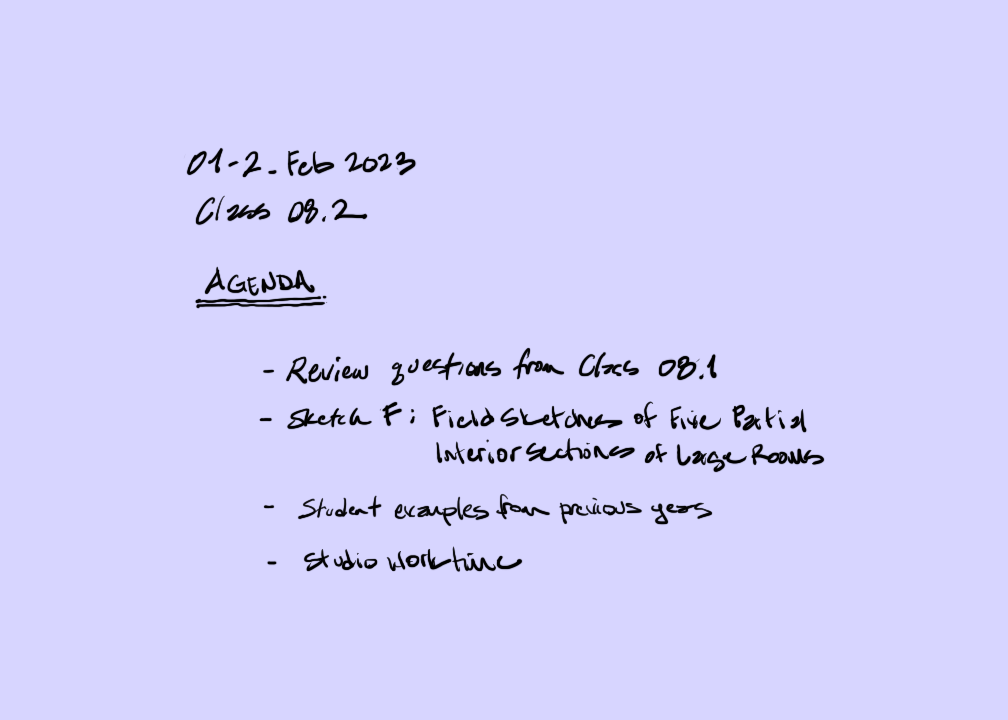 01-2_Feb 2023
Class 08.2
AGENDA
- Review questions from Class 08.1
- Sketch F: Field Sketches of Five Partial
Interior Sections of Large Rooms
- Student examples from previous years
- Studio Work time